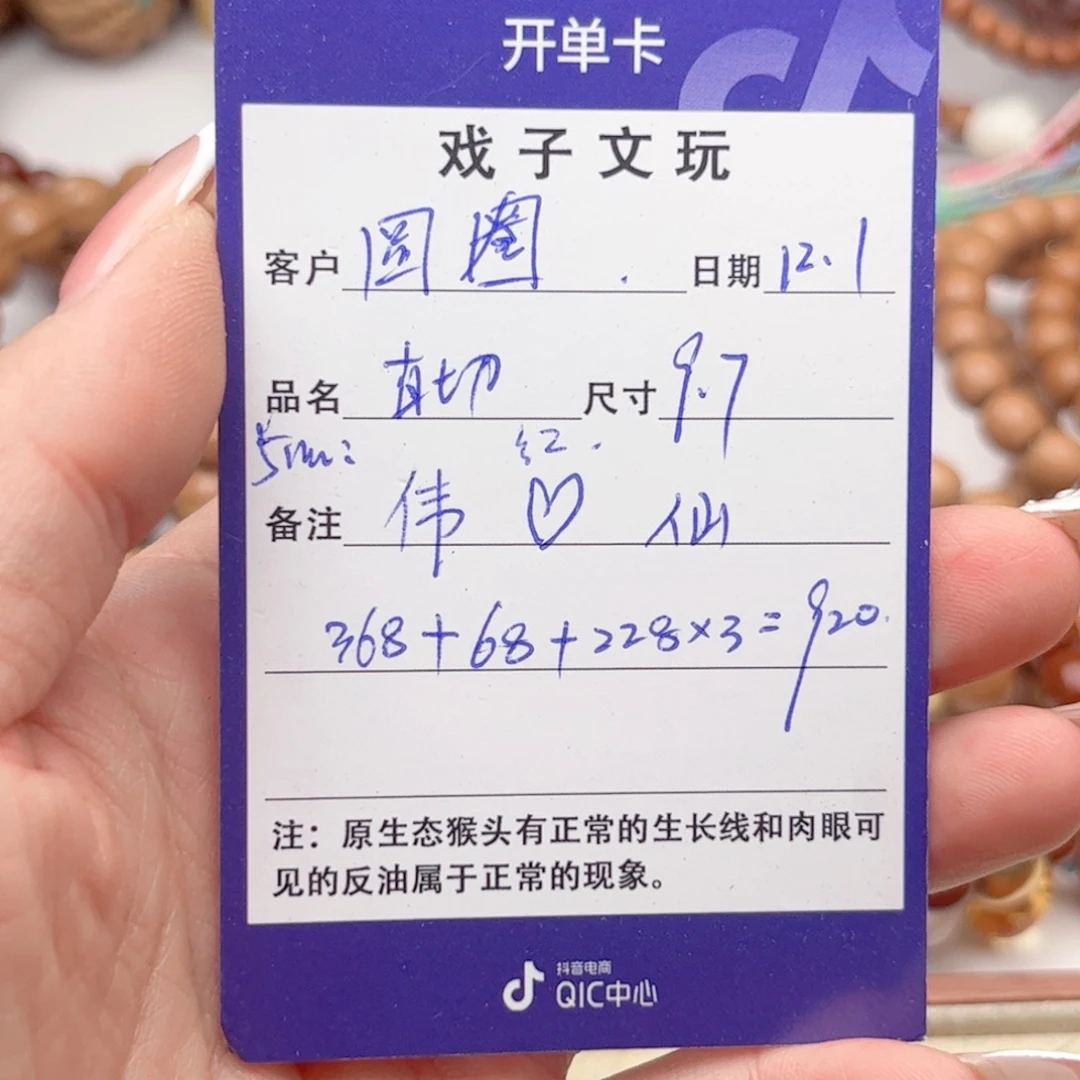 开单卡
戏子文玩
客户 圆圈. 日期 12.1
品名 直切 尺寸 9.7
红.
备注 伟 ♡ 仙
368+68+228×3=920.
注：原生态猴头有正常的生长线和肉眼可
见的反油属于正常的现象。
抖音电商
QIC中心